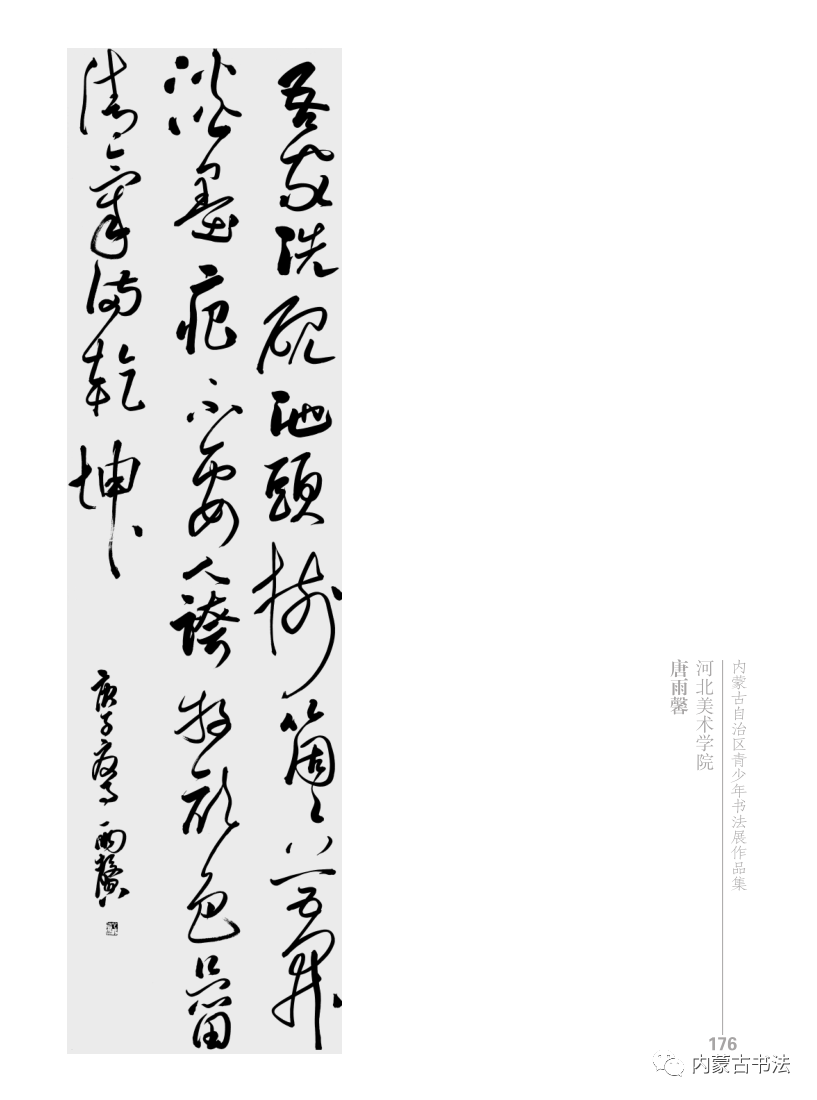 吾家洗硯池頭樹箇〻花開
淡墨痕不要人誇好顏色只留
清氣滿乾坤
庚子夏 雨馨
内蒙古自治区青少年书法展作品集
河北美术学院
唐雨馨
176
内蒙古书法